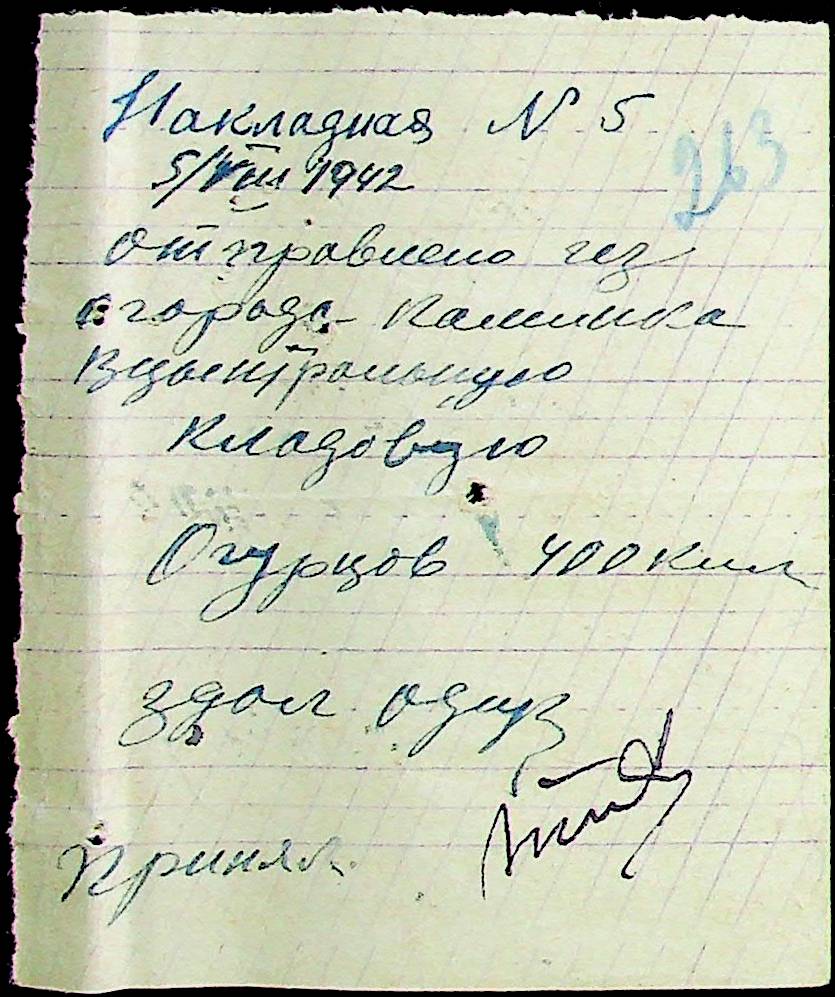 Накладная N 5
263
5/VIII 1942
отправлено чез
огорода Калинка
вцентральную
кладовую
Огурцов 400 кил
здал
принял